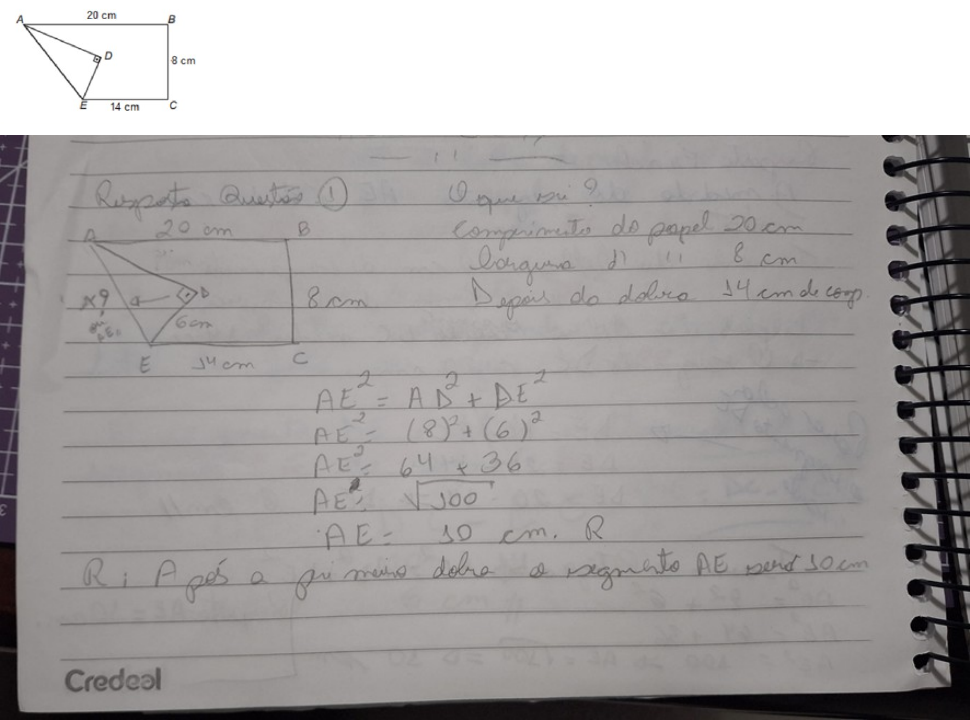 20 cm
A
B
D
8 cm
E
14 cm
C
Resposta Questão 1
O que sei?
20 cm
A
B
Comprimento do papel 20 cm
largura 11 11 8 cm
x?
D
8 cm
Depois do dobra 14 cm de comp.
6 cm
E
14 cm
C
AE² = AD² + DE²
AE² = (8)² + (6)²
AE² = 64 + 36
AE² = √100
AE = 10 cm. R
R: Após a primeira dobra o segmento AE será 10 cm
Credeal